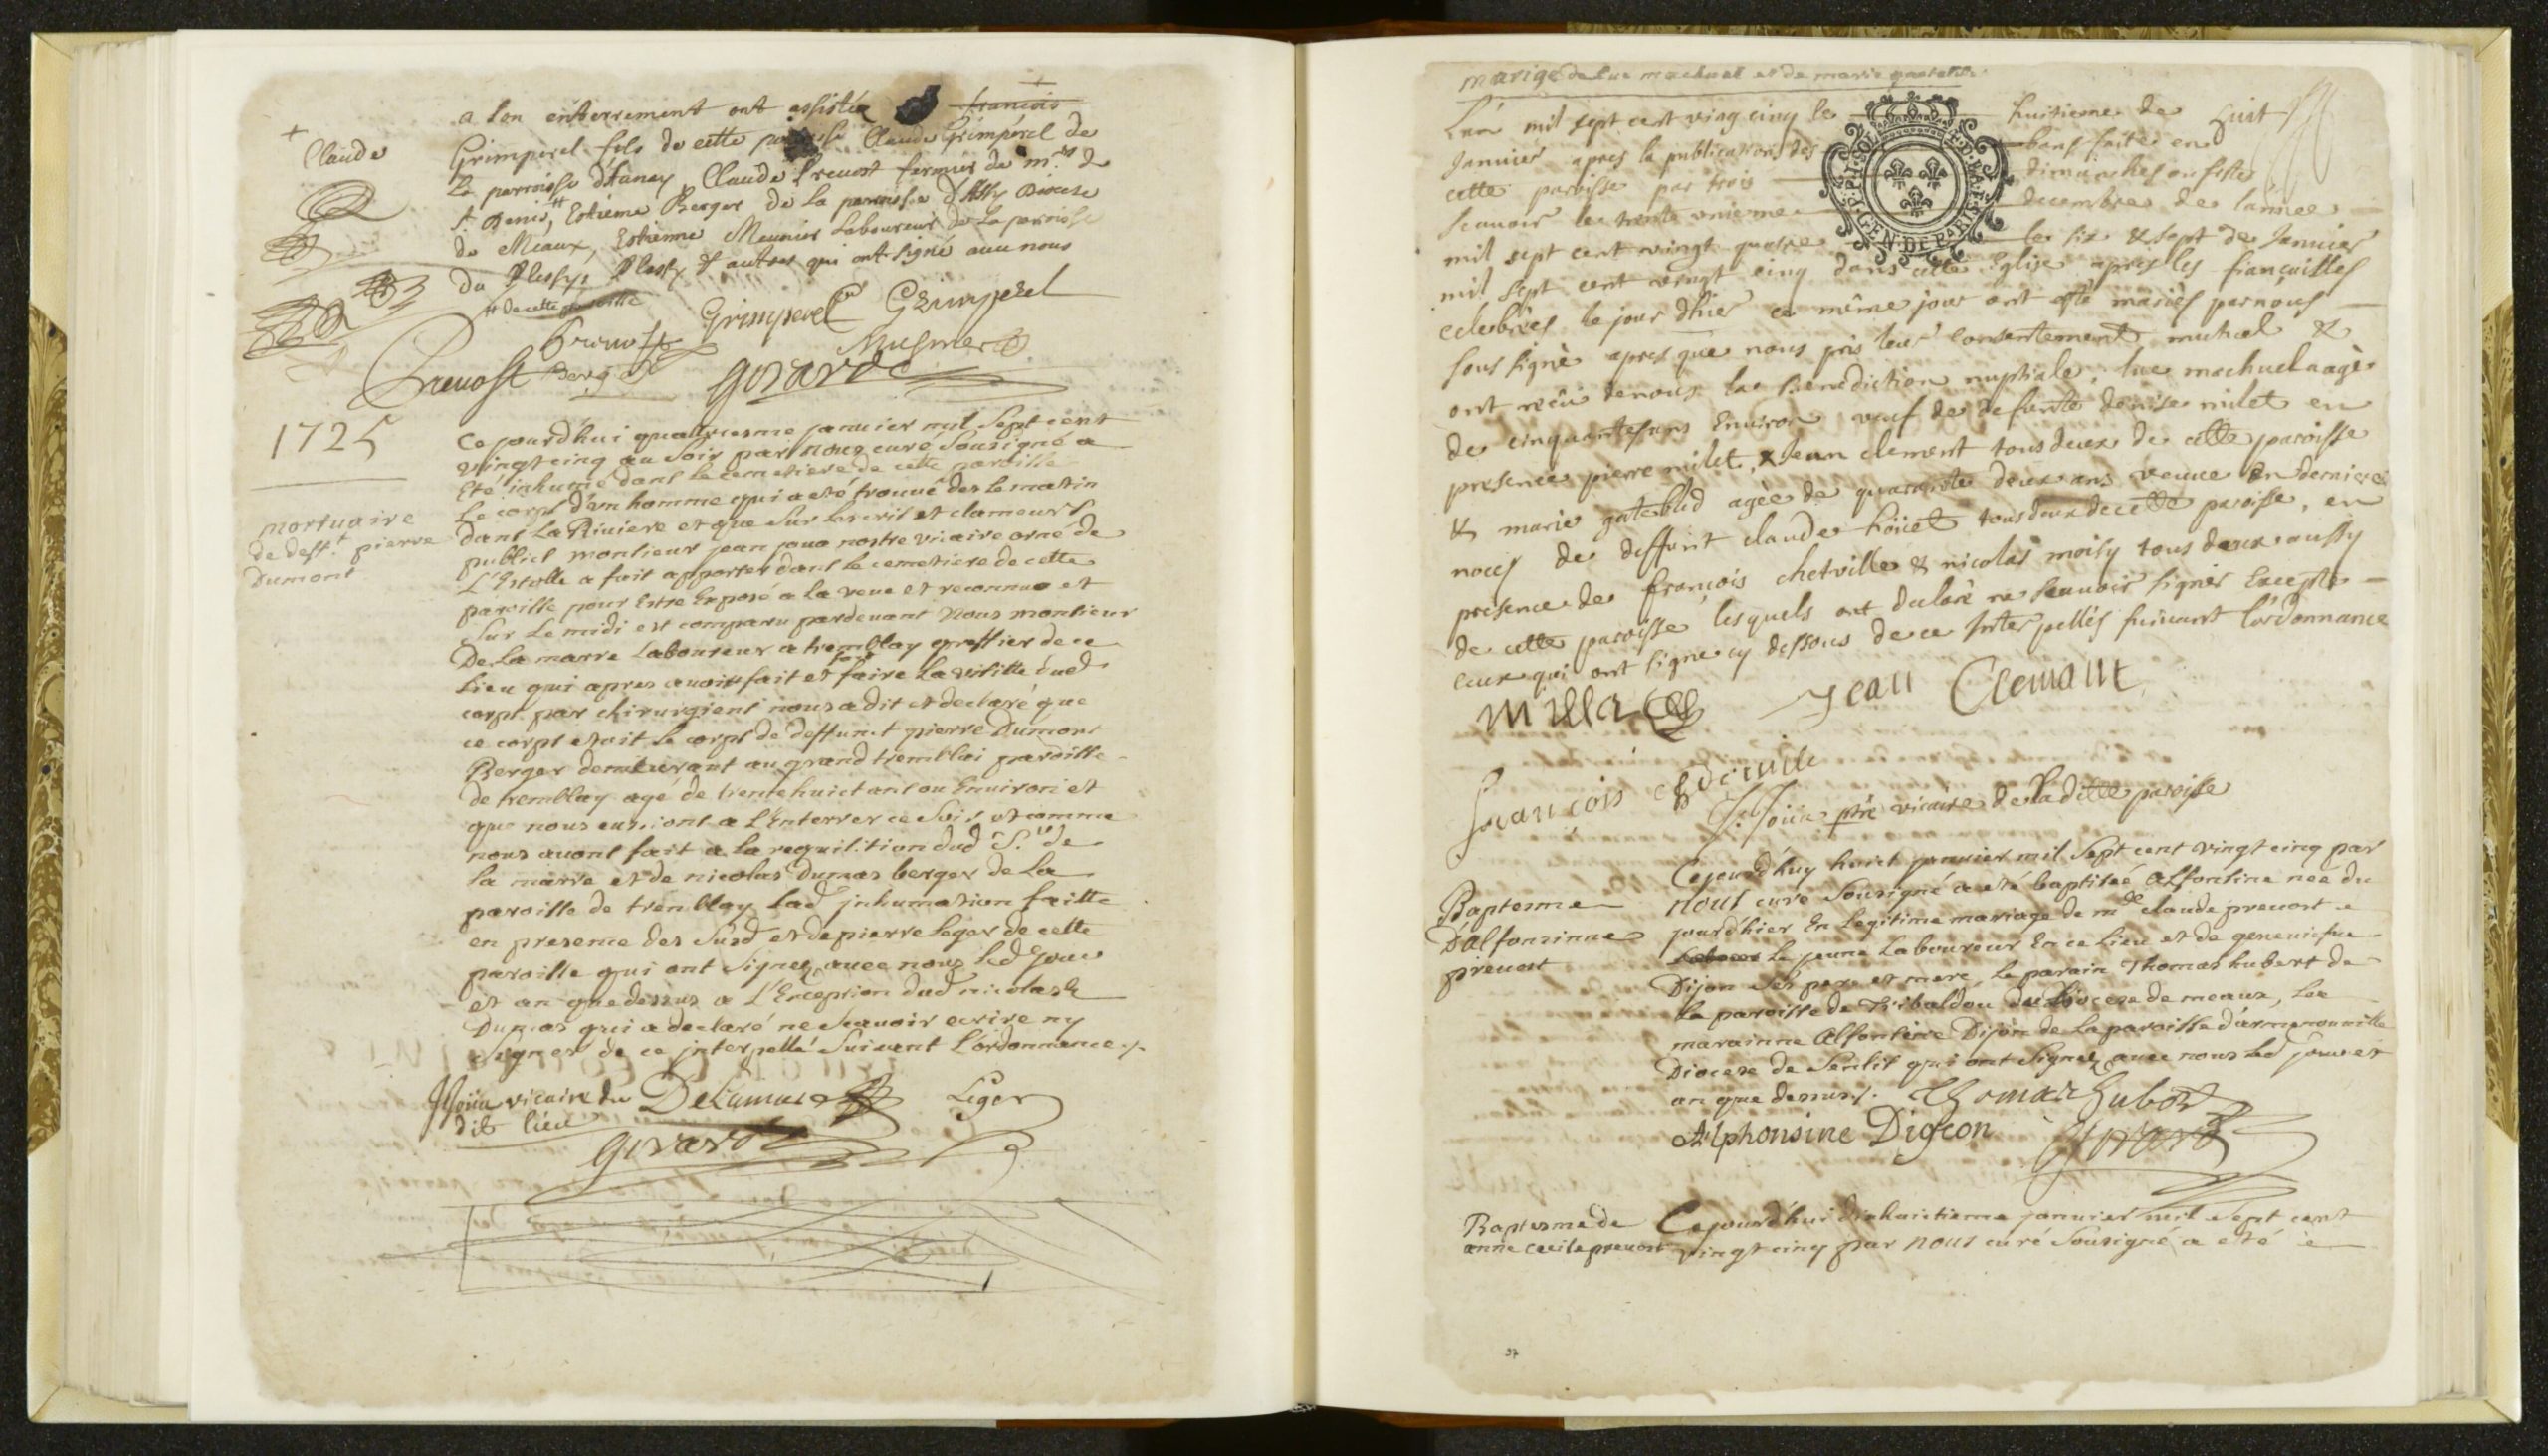 a son enterrement ont assistée françois
Claude
Grimperel fils de cette paroisse Claude Grimperel de
la parroisse d'Annay Claude Preuost fermier de mrs de
St Denis, Estienne Berger de la parroisse d'Assy Diocese
de Meaux, Estienne Meunier Laboureur de la parroisse
du Plessys Plasly & autres qui ont signé auec nous
# de cette paroisse
Preuost Grimperel Grimperel
Preuost Berger Musnier
Girard
1725
mortuaire
de defft pierre
Dumont
Ce jourd'hui quatriesme januier mil Sept cent
vingt cinq au soir par nous curé Sousigné a
Eté inhumé dans le cemetiere de cette paroisse
Le corps d'un homme qui a eté trouué des le matin
dans La Riuiere et que sur les cris et clameurs
publics monsieur jean joua nostre vicaire orné de
L'Estolle a fait apporter dans le cemetiere de cette
paroisse pour Estre Exposé a la veue et reconnue et
Sur Le midi est comparu pardeuant Nous monsieur
De La marre Laboureur a tremblay greffier de ce
Lieu qui apres auoir fait et faire La visitte dud
corps par chirurgiens nous a dit et declaré que
ce corps etoit le corps de deffunt pierre Dumont
Berger demeurant au grand tremblai paroisse
de tremblay agé de trente huict ans ou Enuiron et
que nous eussions a L'Enterrer ce Soir et comme
nous auons fait a la requisition dud Sr de
la marre et de nicolas Dumas berger de La
paroisse de tremblay lad jnhumation faitte
en presence des susd et de pierre Leger de cette
paroisse qui ont signez auec nous led jour
et an que dessus a L'Exception dud nicolas
Dumas qui a declaré ne scauoir ecrire ny
Signer de ce jnterpellé Suiuant L'ordonnance
J Joüa vicaire du Delamare Leger
dit lieu
Girard
marige de luc machuel et de marie gatebled
L'an mil sept cent ving cinq le huitieme de
Januier apres la publications des bans faite en
cette paroisse par trois dimanches ou festes
scauoir le trente unieme decembre de l'année
mil sept cent vingt quatre les six & sept de Januier
mil sept cent vingt cinq dans cette Eglise apres les fiançailles
celebrées le jour d'hier ce même jour ont esté mariés par nous
sous signé apres que nous pris leur consentement mutuel &
ont reçu de nous la Benediction nuptiale, luc machuel agé
de cinquante ans Enuiron veuf de defunte denise milet en
presence pierre milet, & Jean clement tous deux de cette paroisse
& marie gatebled agée de quarante deux ans veuue En derniere
noces de deffunt claude hoüet tous deux de cette paroisse, en
presence de françois chetville & nicolas moisy tous deux aussy
de cette paroisse lesquels ont declaré ne scauoir signer Excepté
ceux qui ont signe cy dessous de ce Interpellés suiuant l'ordonnance
Jean Clemant
François
J. Joüa ptre vicaire de la ditte paroisse
Baptesme
D'alfonsinne
preuost
Cejourd'huy huict januier mil Sept cent vingt cinq par
Nous curé Sousigné a eté baptisée Alfonsine née du
jourd'hier En Legitime mariage de mre claude preuost
le jeune Laboureur En ce Lieu et de geneuiefue
Dijon ses pere et mere, le parain Thomas hubert de
la paroisse de Tribaldou du Diocese de meaux, La
marainne Alfonsine Dijon de la paroisse d'armenouuille
Diocese de Senlis qui ont Signez auec nous led jour et
an que dessus. Thomas hubert
Alphonsine Digeon Girard
Baptesme de
anne cecile preuost
Cejourd'hui dixhuictieme januier mil Sept cent
vingt cinq par nous curé Sousigné a eté
37